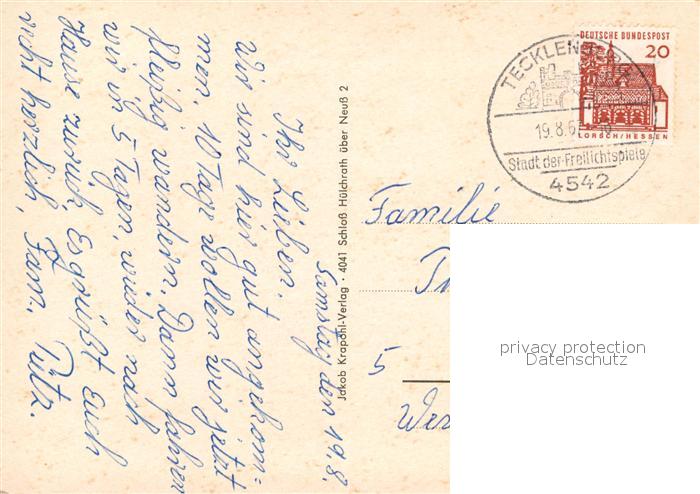 Samstag den 19.8.
Ihr Lieben.
Wir sind hier gut angekom=
men, 10 Tage wollen wir jetzt
fleißig wandern. Dann fahren
wir in 5 Tagen, wieder nach
Hause zurück. Es grüßt Euch
recht herzlich, Fam.
Jakob Krapohl-Verlag · 4041 Schloß Hülchrath über Neuß 2
DEUTSCHE BUNDESPOST
20
LORSCH/HESSEN
19.8.6
Stadt der Freilichtspiele
4542
Familie
5
Wer
privacy protection
Datenschutz